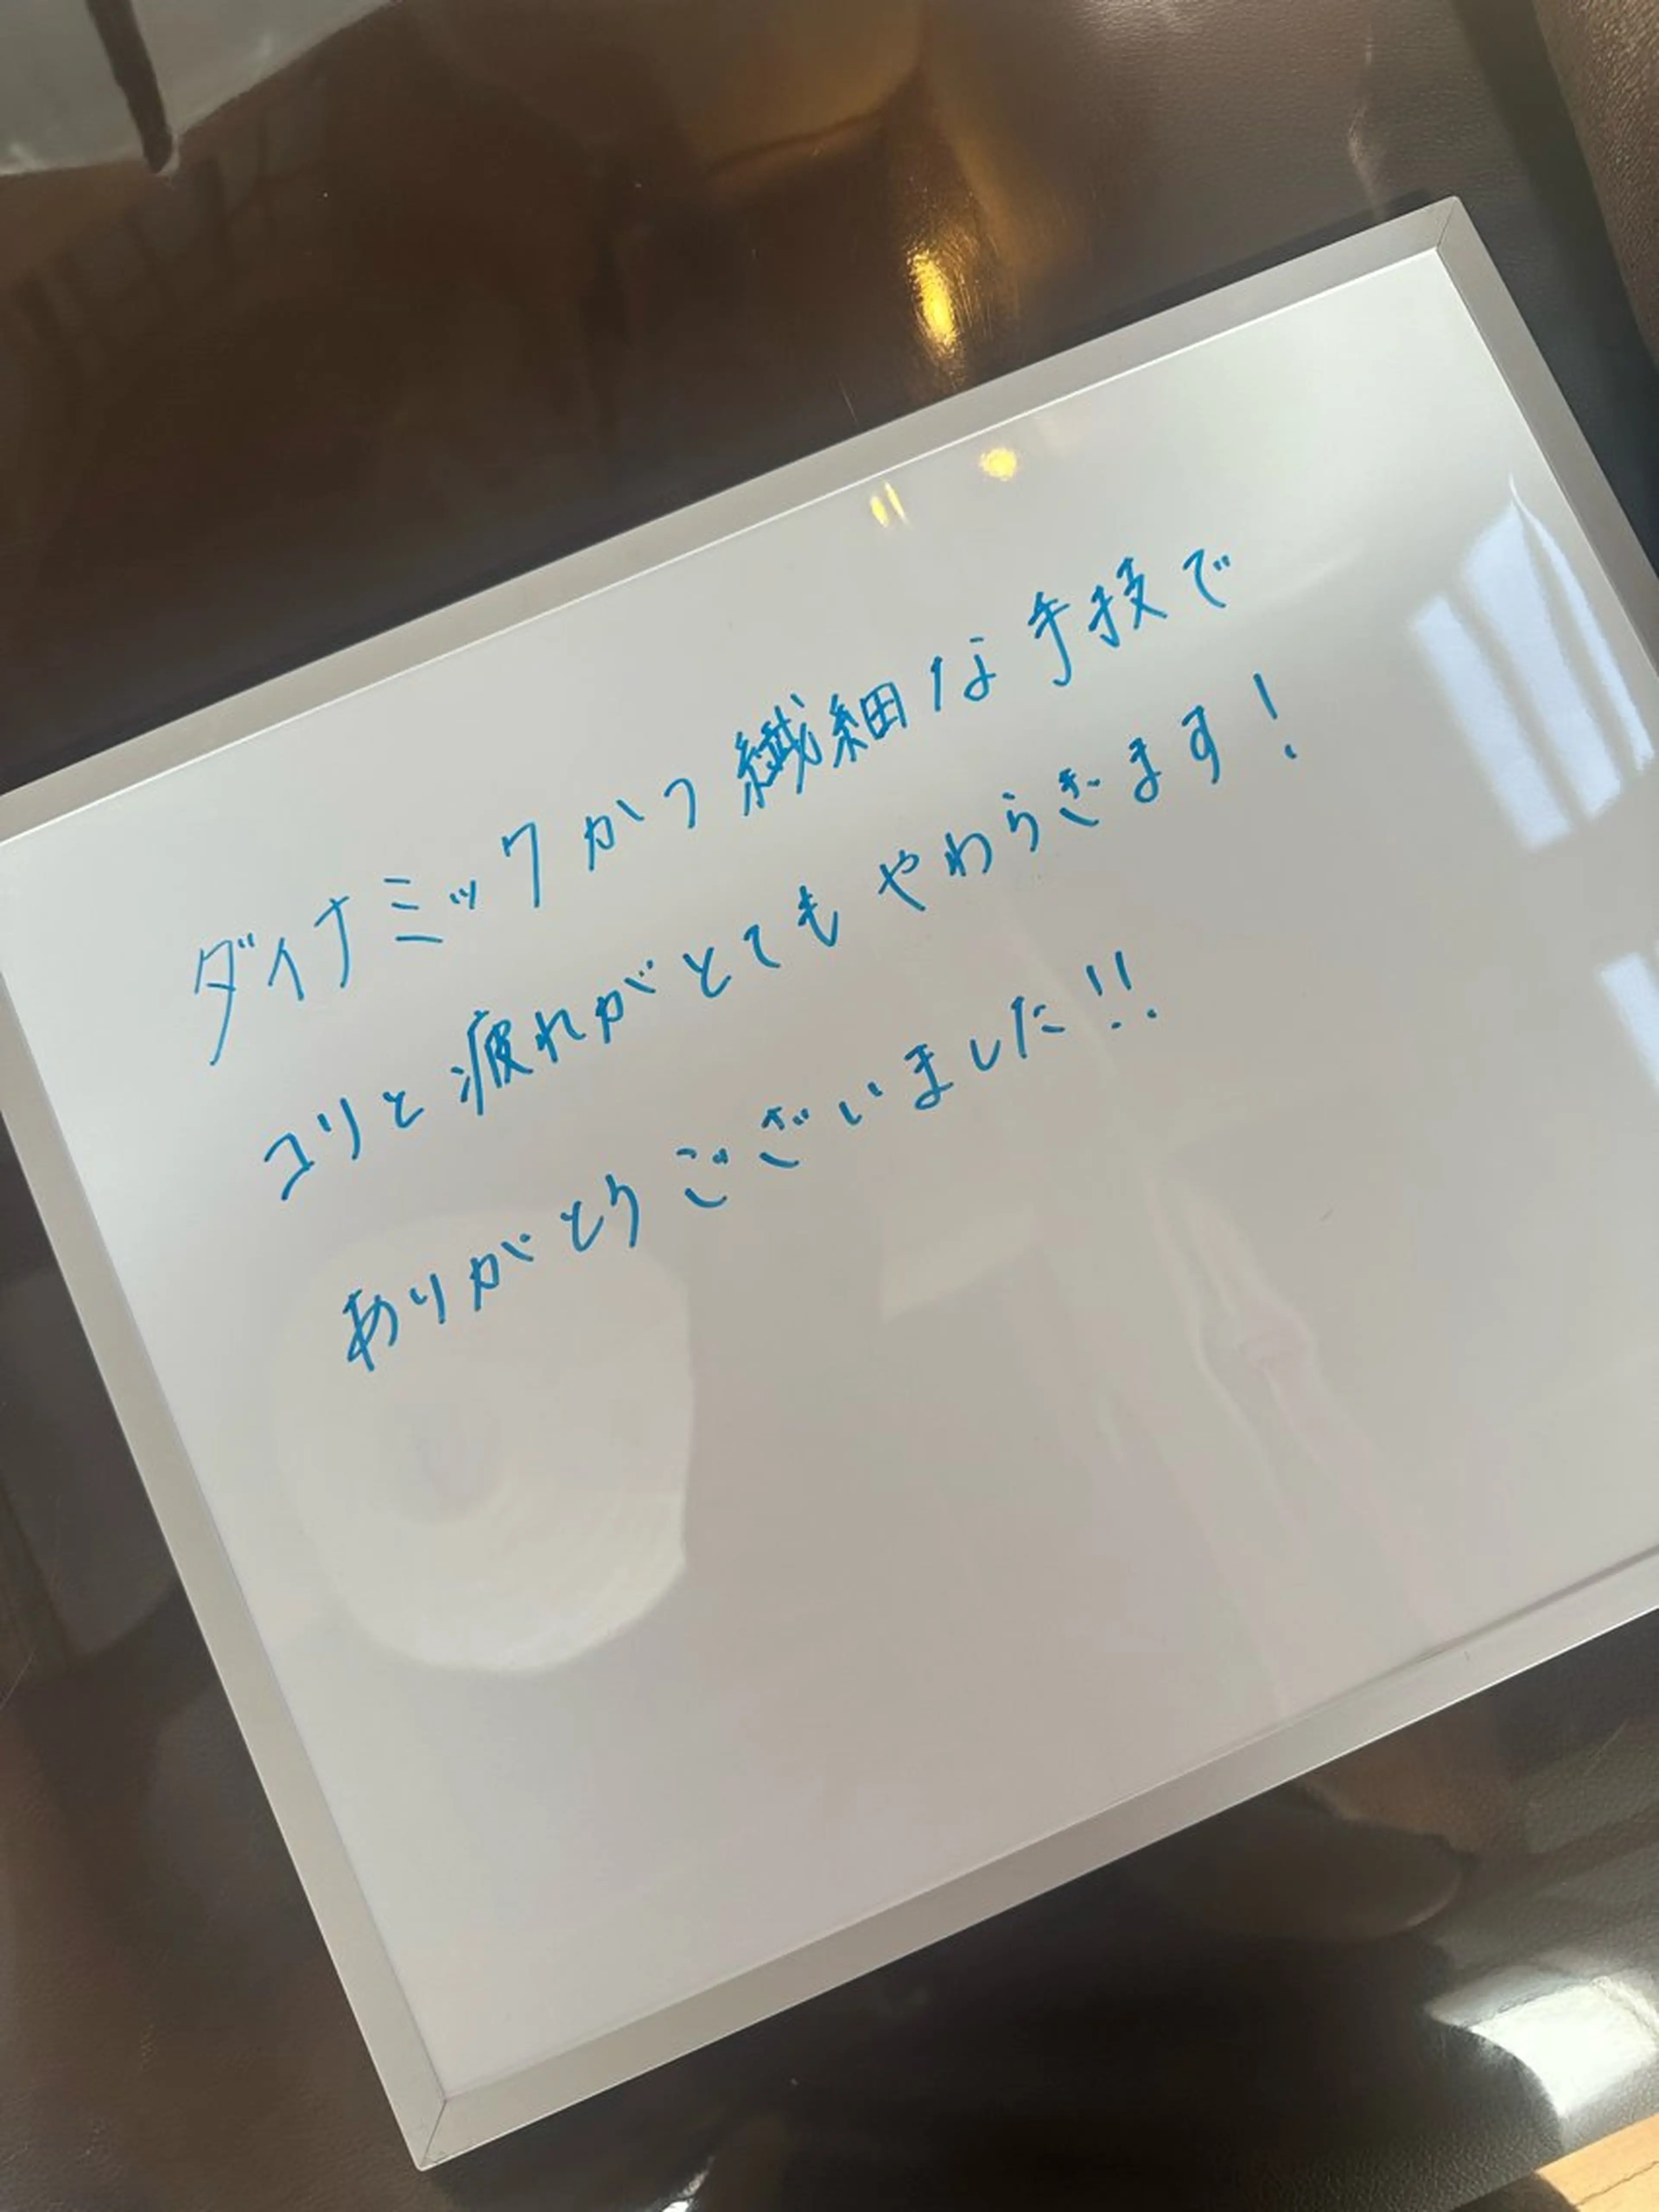 ダイナミックかつ繊細な手技で
コリと疲れがとてもやわらぎます!
ありがとうございました!!